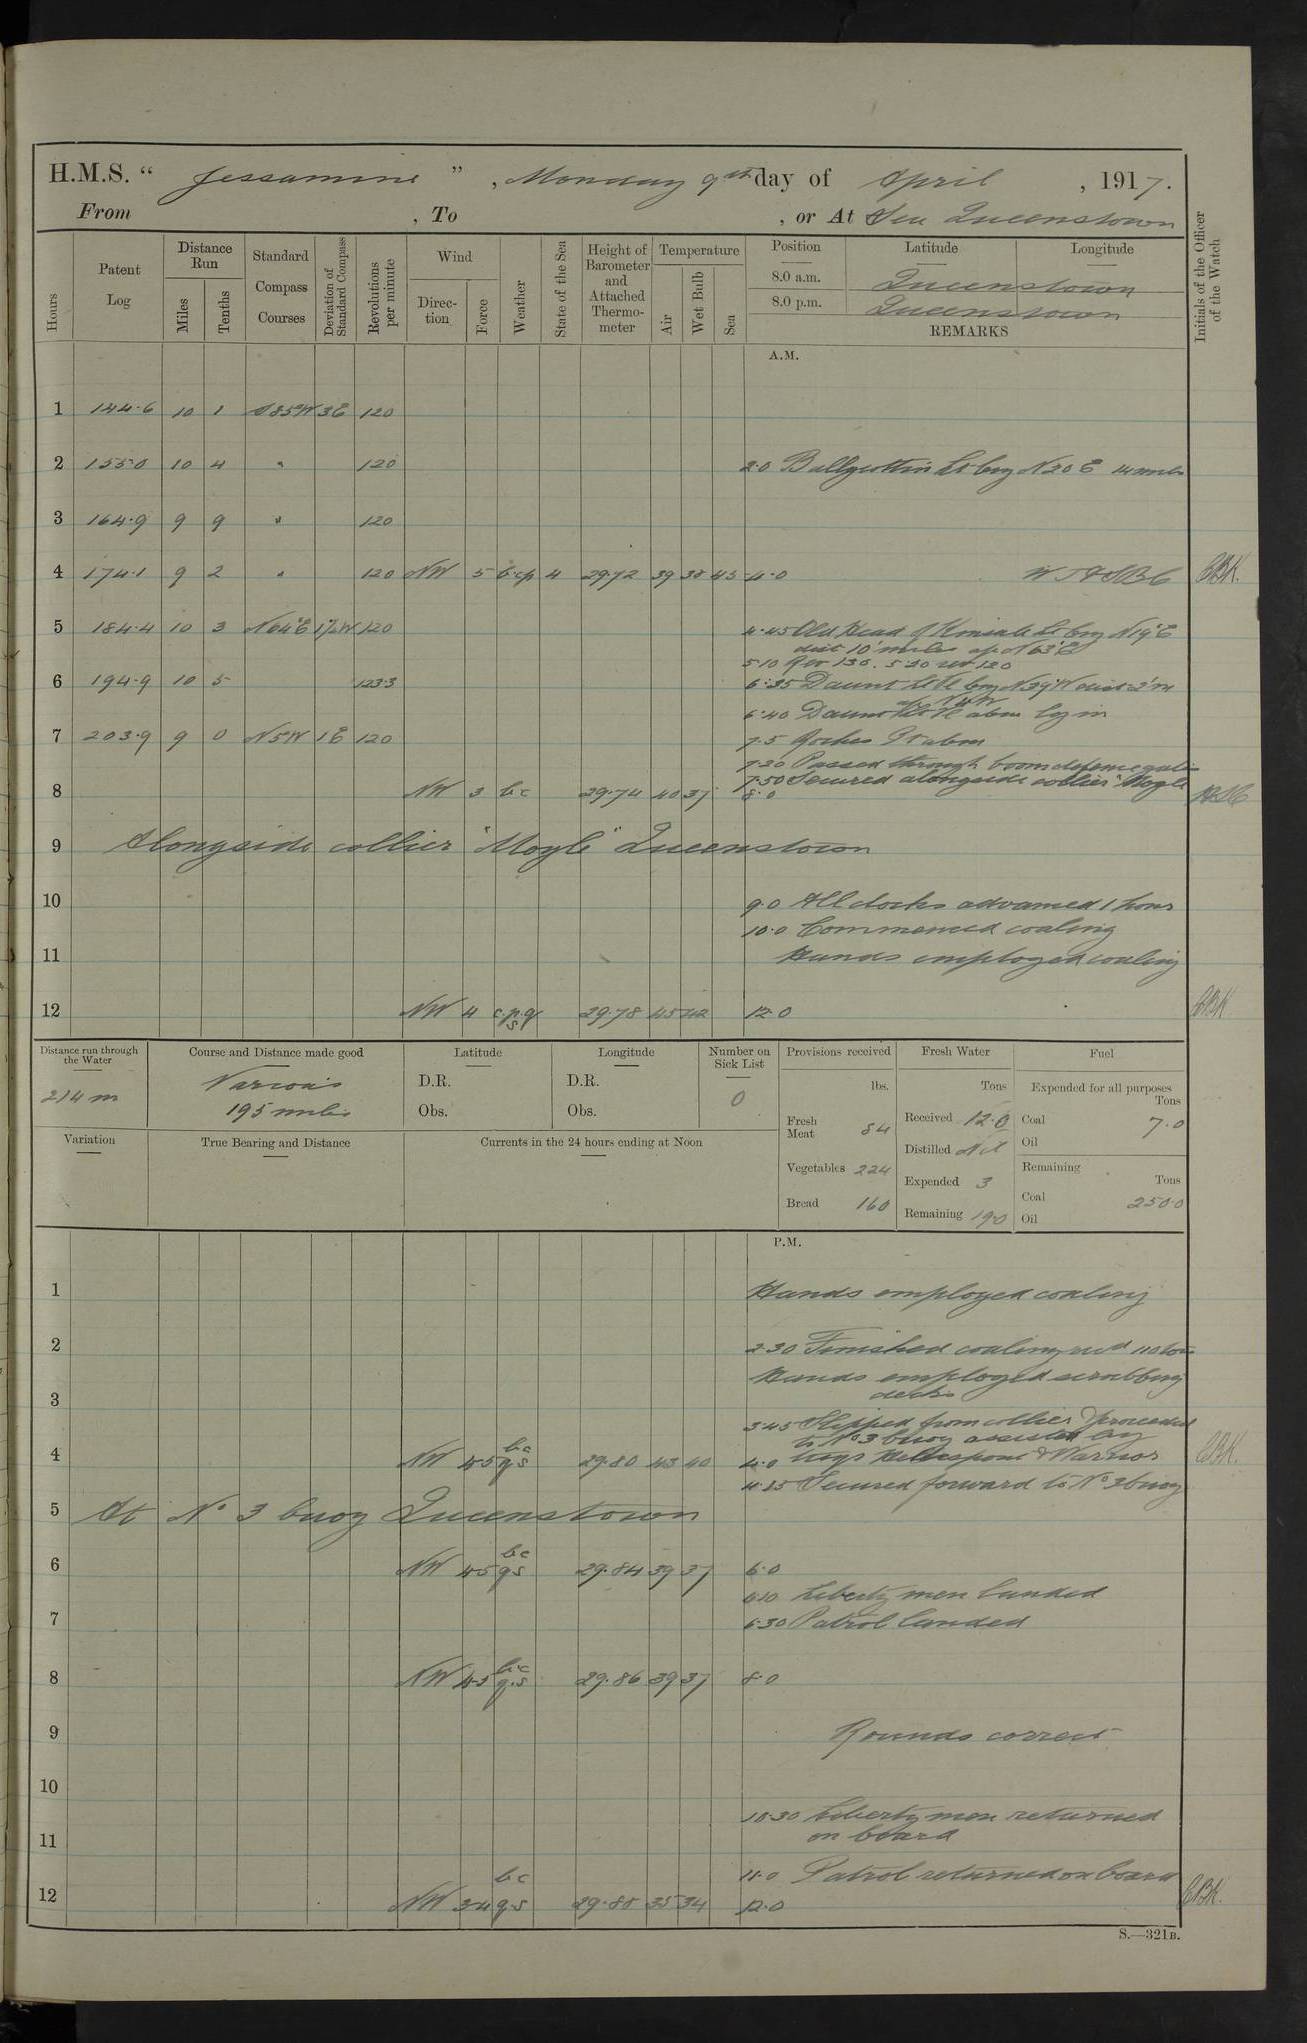 H.M.S. “ Jessamine ” , Monday 9th day of April , 1917.
From , To , or At Sea Queenstown
Hours
Patent Log
Distance Run
Miles
Tenths
Standard Compass Courses
Deviation of Standard Compass
Revolutions per minute
Wind
Direction
Force
Weather
State of the Sea
Height of Barometer and Attached Thermometer
Temperature
Air
Wet Bulb
Sea
Position Latitude Longitude
8.0 a.m. Queenstown
8.0 p.m. Queenstown
REMARKS
Initials of the Officer of the Watch
A.M.
1 144.6 10 1 S85W 3E 120
2 155.0 10 4 " 120 2.0 Ballycottin Lt brg N20E 14 miles
3 164.9 9 9 " 120
4 174.1 9 2 " 120 NW 5 b.cp 4 29.72 39 38 45 4.0 CBK.
5 184.4 10 3 N64E 1½W 120 4.45 Old Head of Kinsale Lt brg N19°E
dist 10 miles a/c N63°E
5.10 Rev 130. 5.50 rev 120
6 194.9 10 5 123.3 6.35 Daunt Lt Vl brg N39W dist 2'm
a/c N4W
6.40 Daunt Lt Vl abm log in
7 203.9 9 0 N5W 1E 120 7.5 Roches Pt abm
7.20 Passed through boom defence gate
7.50 Secured alongside collier "Moyle
8 NW 3 bc 29.74 40 37 8.0
9 Alongside collier "Moyle" Queenstown
10 9.0 All clocks advanced 1 hour
10.0 Commenced coaling
11 Hands employed coaling
12 NW 4 c.p.q s 29.78 45 42 12.0 CBK
Distance run through the Water
214 m
Course and Distance made good
Various
195 miles
Latitude
D.R.
Obs.
Longitude
D.R.
Obs.
Number on Sick List
0
Provisions received
lbs.
Fresh Meat 84
Vegetables 224
Bread 160
Fresh Water
Tons
Received 12.0
Distilled Nil
Expended 3
Remaining 19.0
Fuel
Expended for all purposes
Tons
Coal 7.0
Oil
Remaining
Tons
Coal 250.0
Oil
Variation
True Bearing and Distance
Currents in the 24 hours ending at Noon
P.M.
1 Hands employed coaling
2 2.30 Finished coaling recd 110 tons
Hands employed scrubbing
3 decks
3.45 Slipped from collier & proceeded
to No 3 buoy assisted by
4 NW 4.5 bc qs 29.80 43 40 4.0 tugs Hellespont & Warrior CBK.
4.25 Secured forward to No 3 buoy
5 At No 3 buoy Queenstown
6 NW 4.5 bc qs 29.84 39 37 6.0
6.10 Liberty men landed
7 6.30 Patrol landed
8 NW 4.5 bc q.s 29.86 39 37 8.0
9 Rounds correct
10
10.30 Liberty men returned
11 on board
11.0 Patrol returned on board
12 NW 3.4 bc q.s 29.88 35 34 12.0 CBK.
S.—321B.